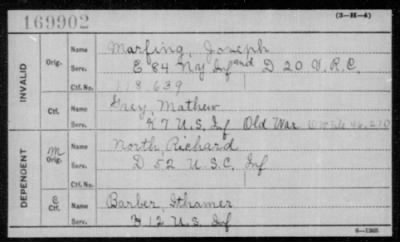 169902
(3-H-4)
INVALID
Orig.
Name Marfing, Joseph
Serv. E 84 NY Inf and D 20 V.R.C.
Ctf. No. 118639
Ctf.
Name Grey, Mathew
Serv. K 7 U.S. Inf Old War
DEPENDENT
M Orig.
Name North, Richard
Serv. D 52 U.S.C. Inf
Ctf. No.
C Ctf.
Name Barber, Ithamer
Serv. B 12 U.S. Inf